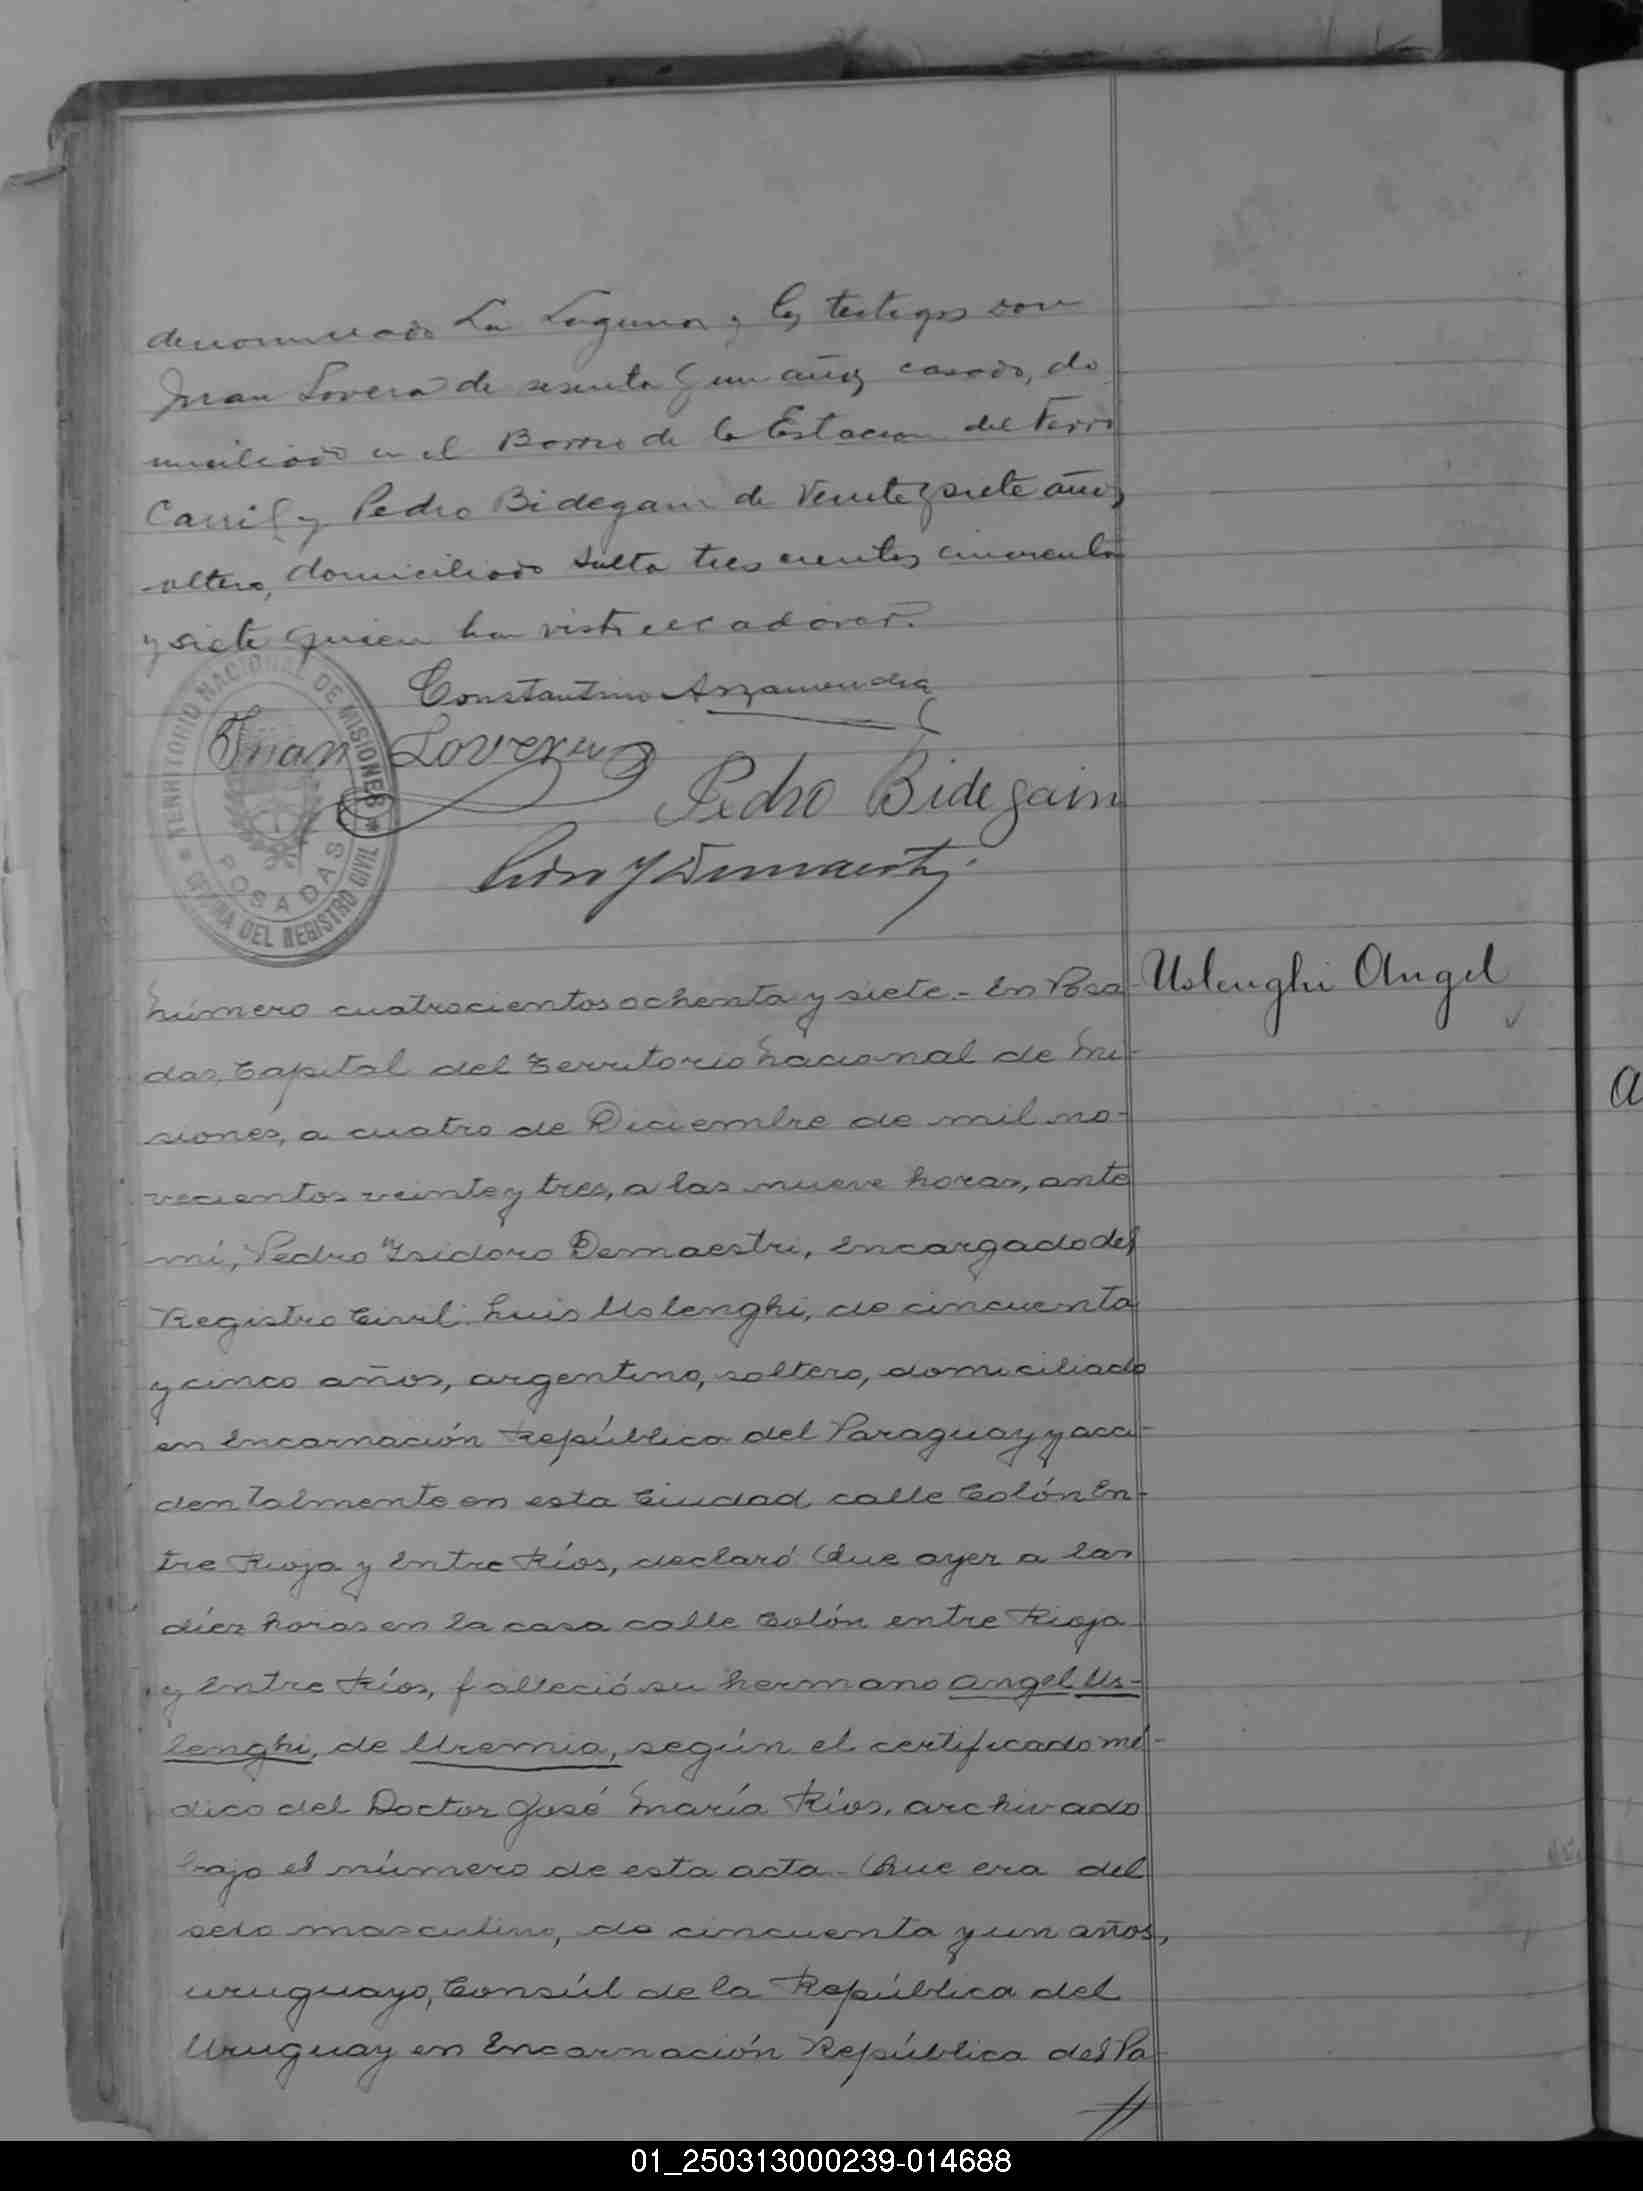 denominado La Laguna y los testigos son
Juan Lovera de sesenta y un años casado, do
miciliado en el Barrio de la Estacion del Ferro
Carril y Pedro Bidegain de veinte y siete años,
soltero, domiciliado Salta tres cientos cincuenta
y siete quien han visto el cadaver.
Constantino Arzamendia
Juan Lovera
Pedro Bidegain
TERRITORIO NACIONAL DE MISIONES
OFICINA DEL REGISTRO CIVIL
POSADAS
Número cuatrocientos ochenta y siete.- En Posa
Uslenghi Angel
das, Capital del Territorio Nacional de Mi-
siones, a cuatro de Diciembre de mil no-
vecientos veinte y tres, a las nueve horas, ante
mí, Pedro Isidoro Demaestri, Encargado del
Registro Civil: Luis Uslenghi, de cincuenta
y cinco años, argentino, soltero, domiciliado
en Encarnación República del Paraguay y acci-
dentalmente en esta Ciudad calle Colón En-
tre Rioja y Entre Ríos, declaró Que ayer a las
díez horas en la casa calle Colón entre Rioja
y Entre Ríos, falleció su hermano Angel Us-
lenghi, de Uremia, según el certificado mé-
dico del Doctor José María Ríos, archivado
bajo el número de esta acta.- Que era del
sexo masculino, de cincuenta y un años,
uruguayo, Consúl de la República del
Uruguay en Encarnación República del Pa
//
01_250313000239-014688